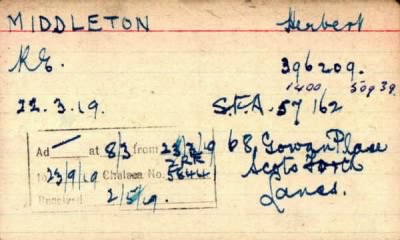 MIDDLETON Herbert
R.E. 396209.
1400 50939
22.3.19. S.F.A. 57162
Ad at 8/3 from 23/3/19
to 23/9/19 Chelsea No. 5844
Received 2/5/19.
68, Gowan Place
Scots Forth
Lancs.